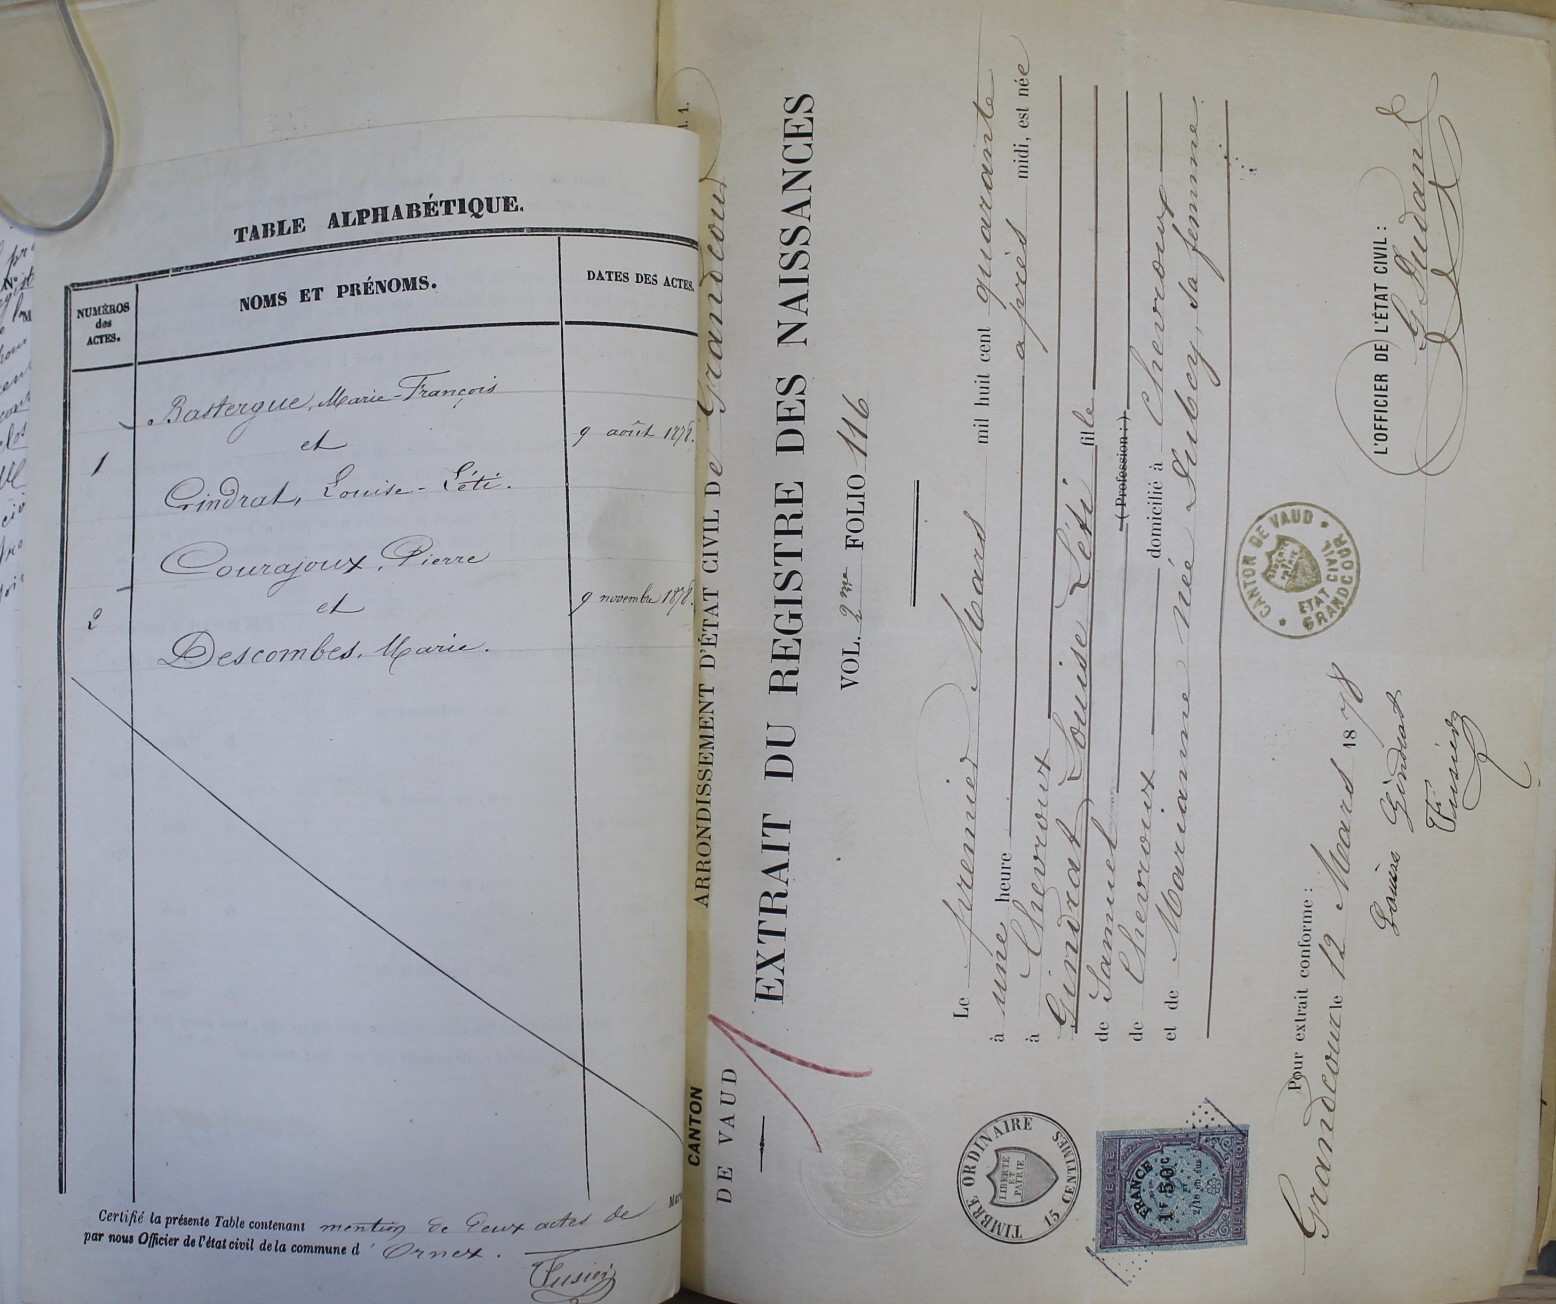 TABLE ALPHABÉTIQUE.
NUMÉROS
des
ACTES.
NOMS ET PRÉNOMS.
DATES DES ACTES.
Bastergue, Marie-François
1
et
9 août 1878.
Gindrat, Louise-Léti.
Courajoux, Pierre
2
et
9 novembre 1878.
Descombes, Marie.
Certifié la présente Table contenant mention de deux actes de Mar
par nous Officier de l'état civil de la commune d' Ornex.
Fusier
CANTON
DE VAUD
ARRONDISSEMENT D'ÉTAT CIVIL DE Grandcour
1
EXTRAIT DU REGISTRE DES NAISSANCES
VOL. 2me FOLIO 116
Le premier Mars mil huit cent quarante
à une heure après midi, est née
à Chevroux
Gindrat Louise Léti fille
de Samuel (Profession:)
de Chevroux domicilié à Chevroux
et de Marianne née Dubey, sa femme
TIMBRE ORDINAIRE
LIBERTÉ
ET
PATRIE
15 CENTIMES
FRANCE
1F 50C
CANTON DE VAUD
LIBERTÉ
ET
PATRIE
ETAT CIVIL
GRANDCOUR
Pour extrait conforme :
Grandcour le 12 Mars 1878
L'OFFICIER DE L'ÉTAT CIVIL :
Louise Gindrat
Fusier